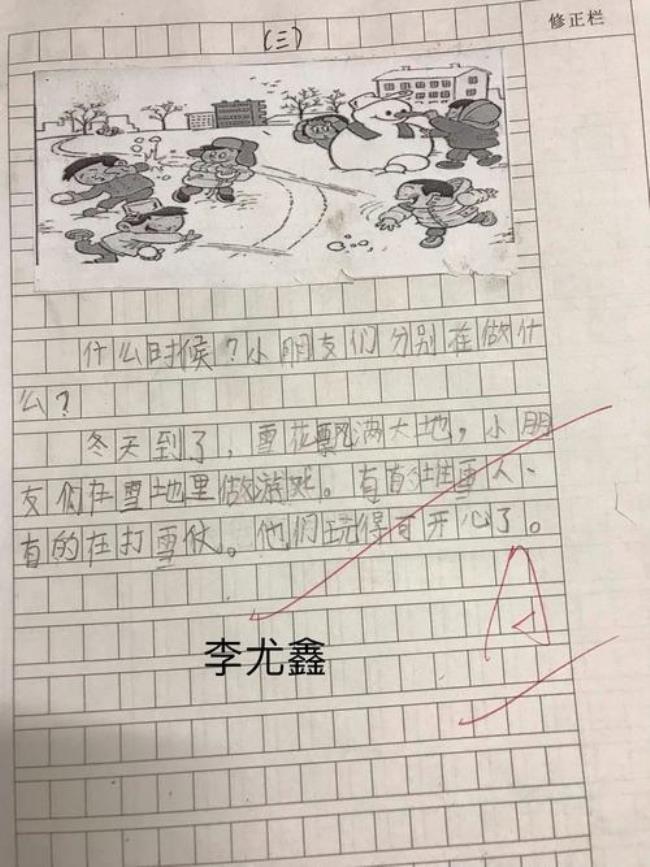 修正栏
(三)
什么时候?小朋友们分别在做什
么?
冬天到了,雪花飘满大地,小朋
友们在雪地里做游戏。有的堆雪人、
有的在打雪仗。他们玩得可开心了。
A
李尤鑫